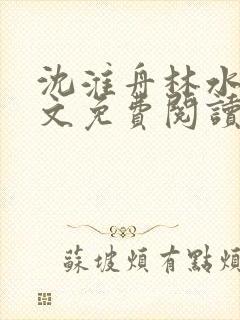 沈淮舟林水
文免費閱讀
蘇坡煩有點煩